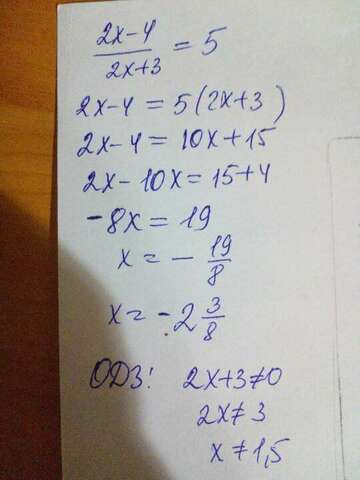 (2x-4)/(2x+3) = 5
2x-4 = 5(2x+3)
2x-4 = 10x+15
2x-10x = 15+4
-8x = 19
x = - 19/8
x = -2 3/8
ОДЗ: 2x+3≠0
2x≠3
x≠1,5